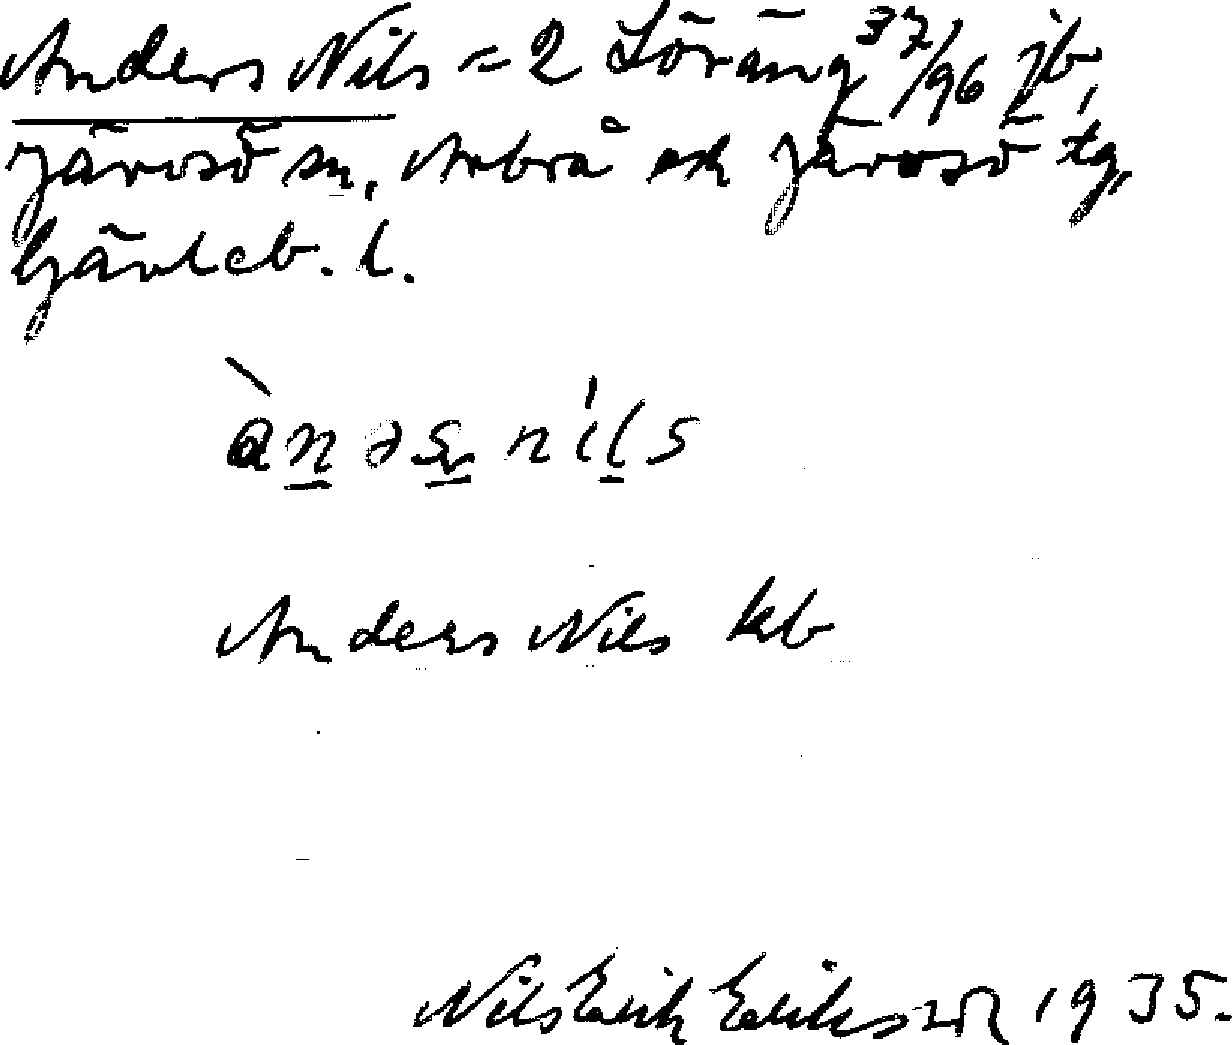 Anders Nils = 2 Löräng 37/96 jb,
Järvsö sn, Arbrå och Järvsö tg,
Gävleb. l.
ànəʂ nils
Anders Nils kb
Nils Erik Eriksson 1935.